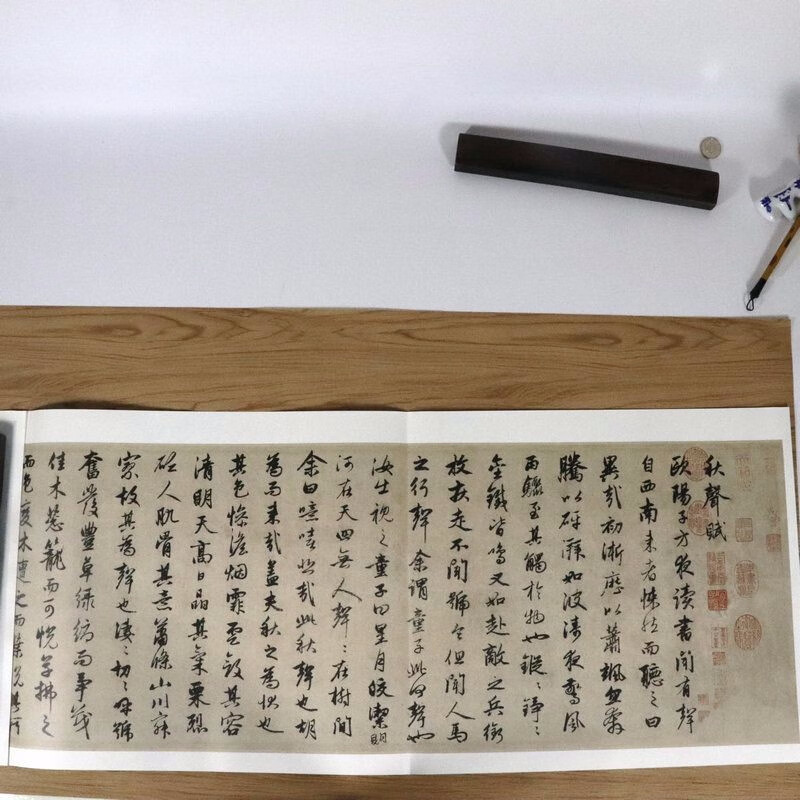 秋聲賦
歐陽子方夜读書聞有聲
自西南来者悚然而聽之曰
異哉初淅瀝以蕭颯忽奔
騰以砰湃如波濤夜驚風
雨驟至其觸於物也鏦〻錚〻
金鐵皆鳴又如赴敵之兵銜
枚疾走不聞號令但聞人馬
之行聲余謂童子此何聲也
汝出視之童子曰星月皎潔明
河在天四無人聲〻在樹間
余曰噫嘻悲哉此秋聲也胡
為而来哉盖夫秋之為状也
其色惨澹烟霏雲斂其容
清明天高日晶其氣栗烈
砭人肌骨其意蕭條山川寂
寥故其為聲也凄〻切〻呼號
奮發豐草绿縟而争茂
佳木葱籠而可悦草拂之
而色變木遭之而葉脱其所